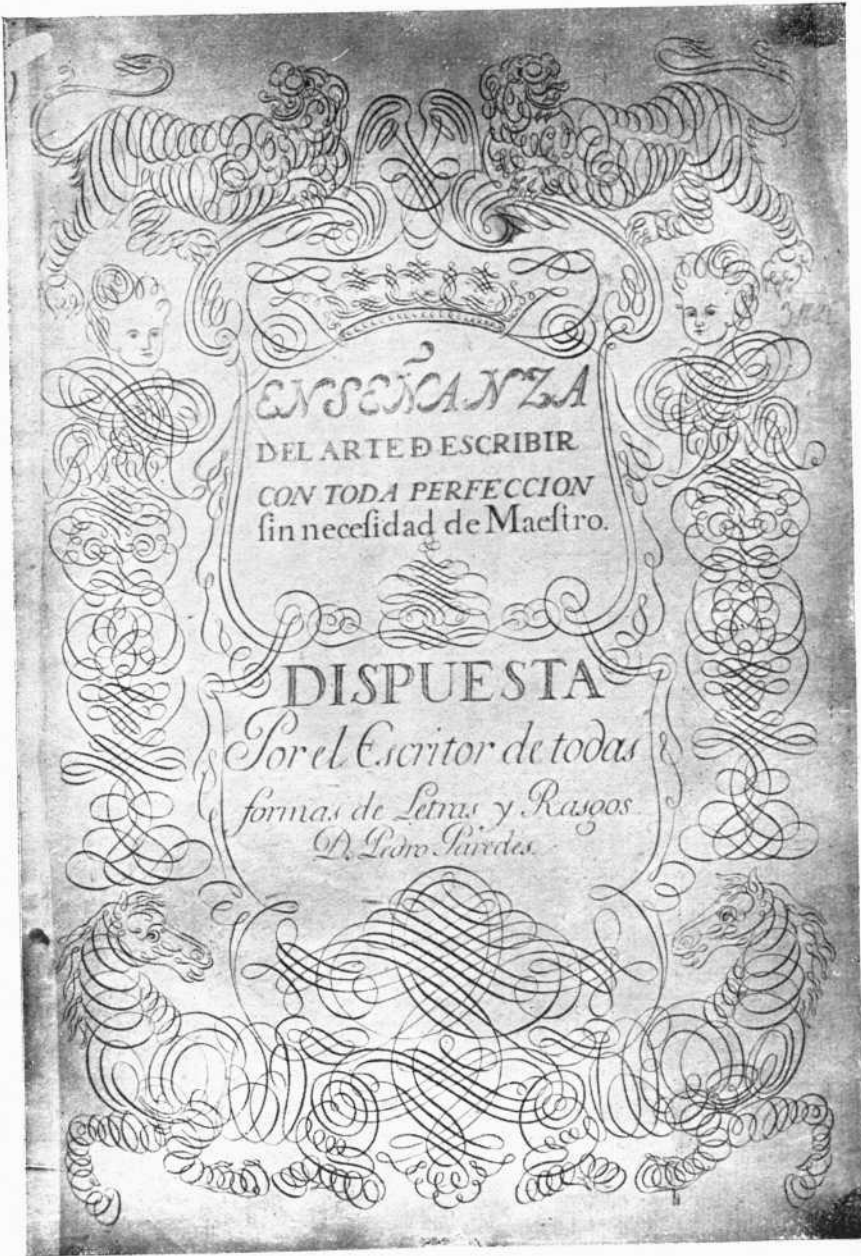 ENSEÑANZA
DEL ARTE Đ ESCRIBIR
CON TODA PERFECCION
ſin neceſidad de Maeſtro.
DISPUESTA
Por el Escritor de todas
formas de Letras y Rasgos
D. Pedro Paredes.